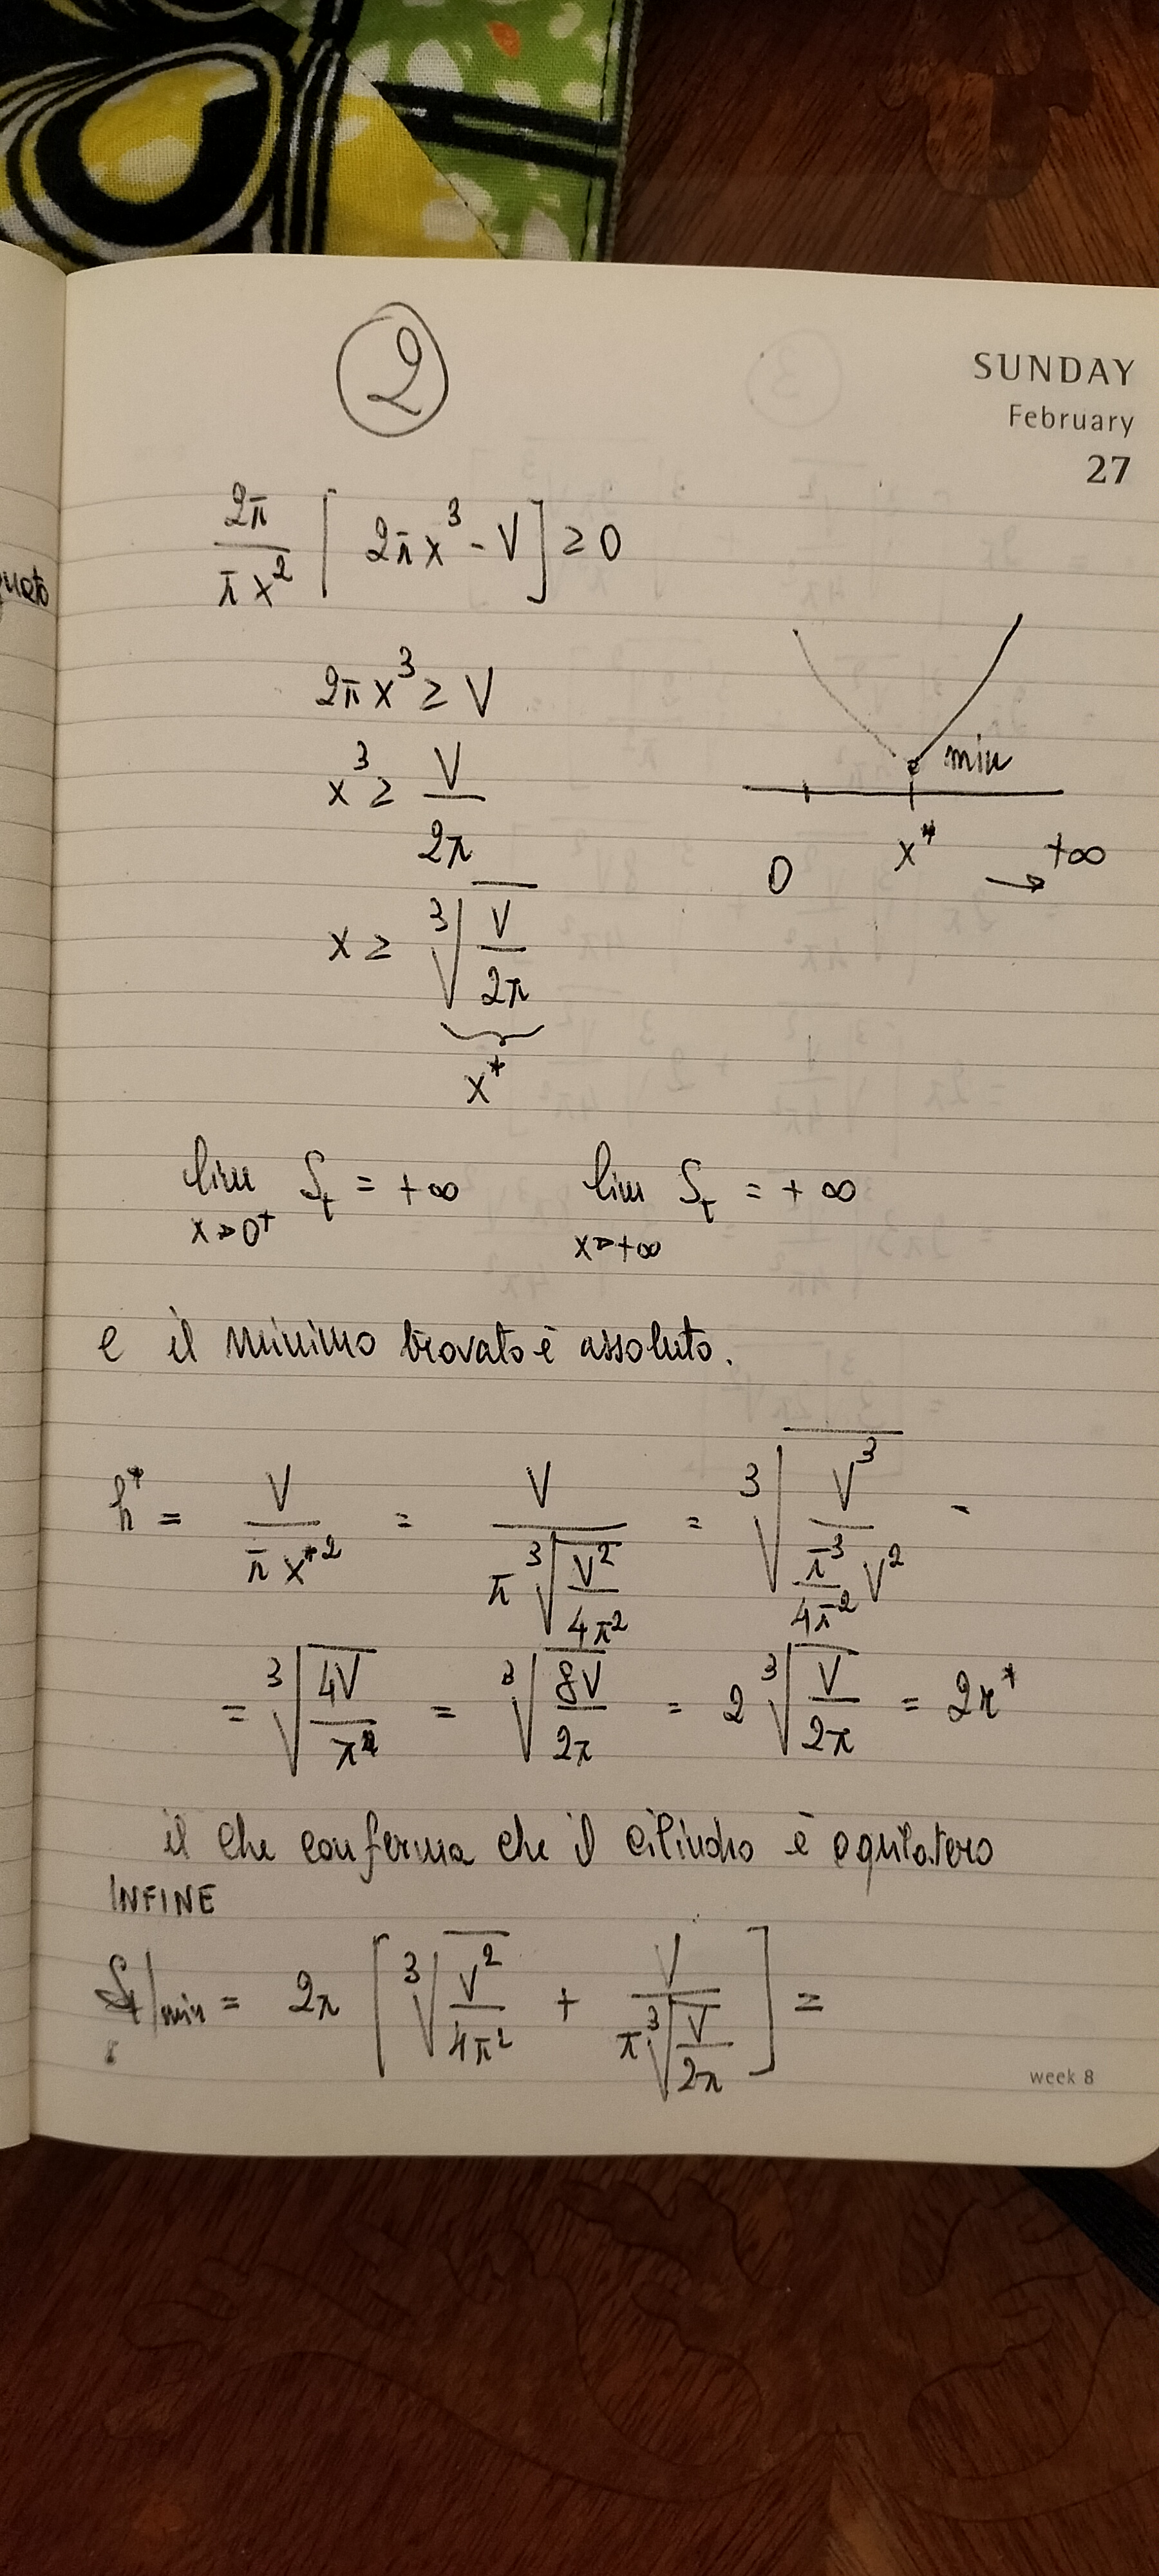 2
SUNDAY
February
27
2π/πx² [2πx³ - V] ≥ 0
2πx³ ≥ V
x³ ≥ V/2π
x ≥ ³√(V/2π)
x*
min
0 x* → +∞
lim x→0⁺ St = +∞ lim x→+∞ St = +∞
e il minimo trovato è assoluto.
h* = V/πx*² = V/(π ³√(V²/4π²)) = ³√(V³/((π³/4π²) V²)) =
= ³√(4V/π) = ³√(8V/2π) = 2 ³√(V/2π) = 2r*
il che conferma che il cilindro è equilatero
INFINE
St|min = 2π [³√(V²/4π²) + V/(π ³√(V/2π))] =
week 8